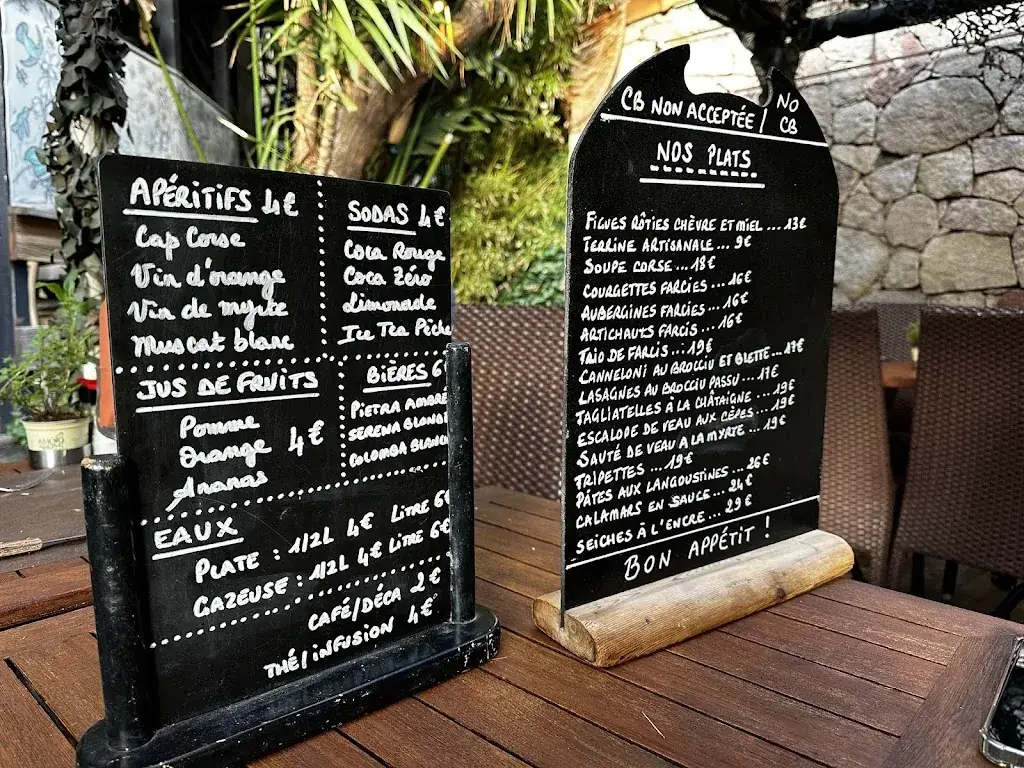 APÉRITIFS 4€
Cap Corse
Vin d'orange
Vin de myrte
Muscat blanc
SODAS 4€
Coca Rouge
Coca Zéro
Limonade
Ice Tea Pêche
JUS DE FRUITS
Pomme
Orange 4€
Ananas
BIÈRES 6
PIETRA AMBRÉ
SERENA BLOND
COLOMBA BLANC
EAUX
PLATE : 1/2L 4€ LITRE 6€
GAZEUSE : 1/2L 4€ LITRE 6€
CAFÉ/DÉCA 2€
THÉ/INFUSION 4€
CB NON ACCEPTÉE / NO CB
NOS PLATS
FIGUES RÔTIES CHÈVRE ET MIEL ... 13€
TERRINE ARTISANALE ... 9€
SOUPE CORSE ... 18€
COURGETTES FARCIES ... 16€
AUBERGINES FARCIES ... 16€
ARTICHAUTS FARCIS ... 16€
TRIO DE FARCIS ... 19€
CANNELONI AU BROCCIU ET BLETTE ... 17€
LASAGNES AU BROCCIU PASSU ... 17€
TAGLIATELLES À LA CHÂTAIGNE ... 19€
ESCALOPE DE VEAU AUX CÈPES ... 19€
SAUTÉ DE VEAU A LA MYRTE ... 19€
TRIPETTES ... 19€
PÂTES AUX LANGOUSTINES ... 26€
CALAMARS EN SAUCE ... 24€
SEICHES À L'ENCRE ... 29€
BON APPÉTIT !